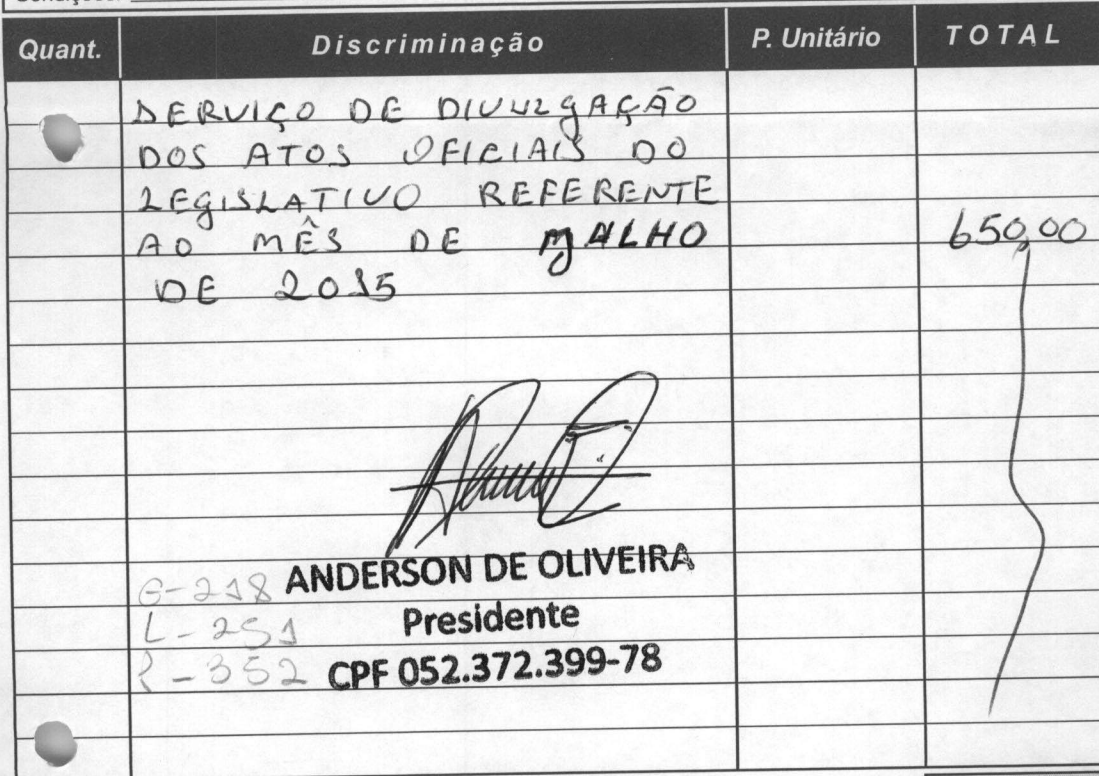 Condições:
Quant. Discriminação P. Unitário TOTAL
SERVIÇO DE DIVULGAÇÃO
DOS ATOS OFICIAIS DO
LEGISLATIVO REFERENTE
AO MÊS DE 650,00
DE 2015
ANDERSON DE OLIVEIRA
Presidente
CPF 052.372.399-78
G-218
L-251
P-352